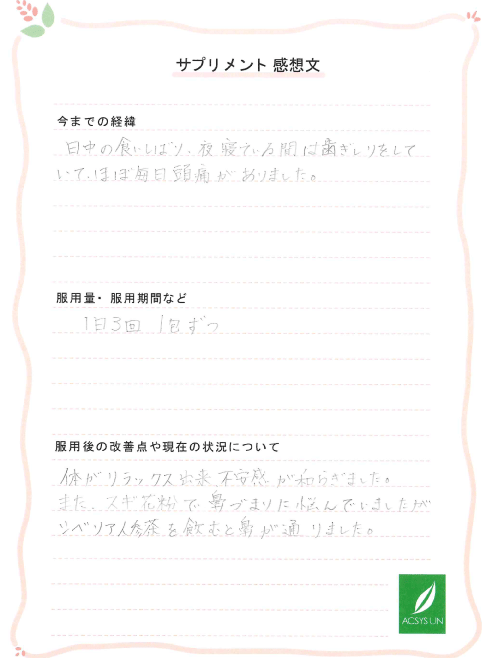 サプリメント 感想文
今までの経緯
日中の食いしばり、夜寝ている間は歯ぎしりをして
いて、ほぼ毎日頭痛がありました。
服用量・服用期間など
1日3回 1包ずつ
服用後の改善点や現在の状況について
体がリラックス出来、不安感が和らぎました。
また、スギ花粉で鼻づまりに悩んでいましたが
シベリア人参茶を飲むと鼻が通りました。
ACSYS LIN